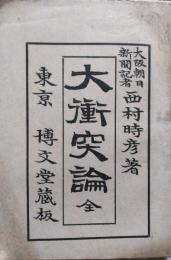 大阪朝日
新聞記者
西村時彦著
大衝突論 全
東京 博文堂蔵板